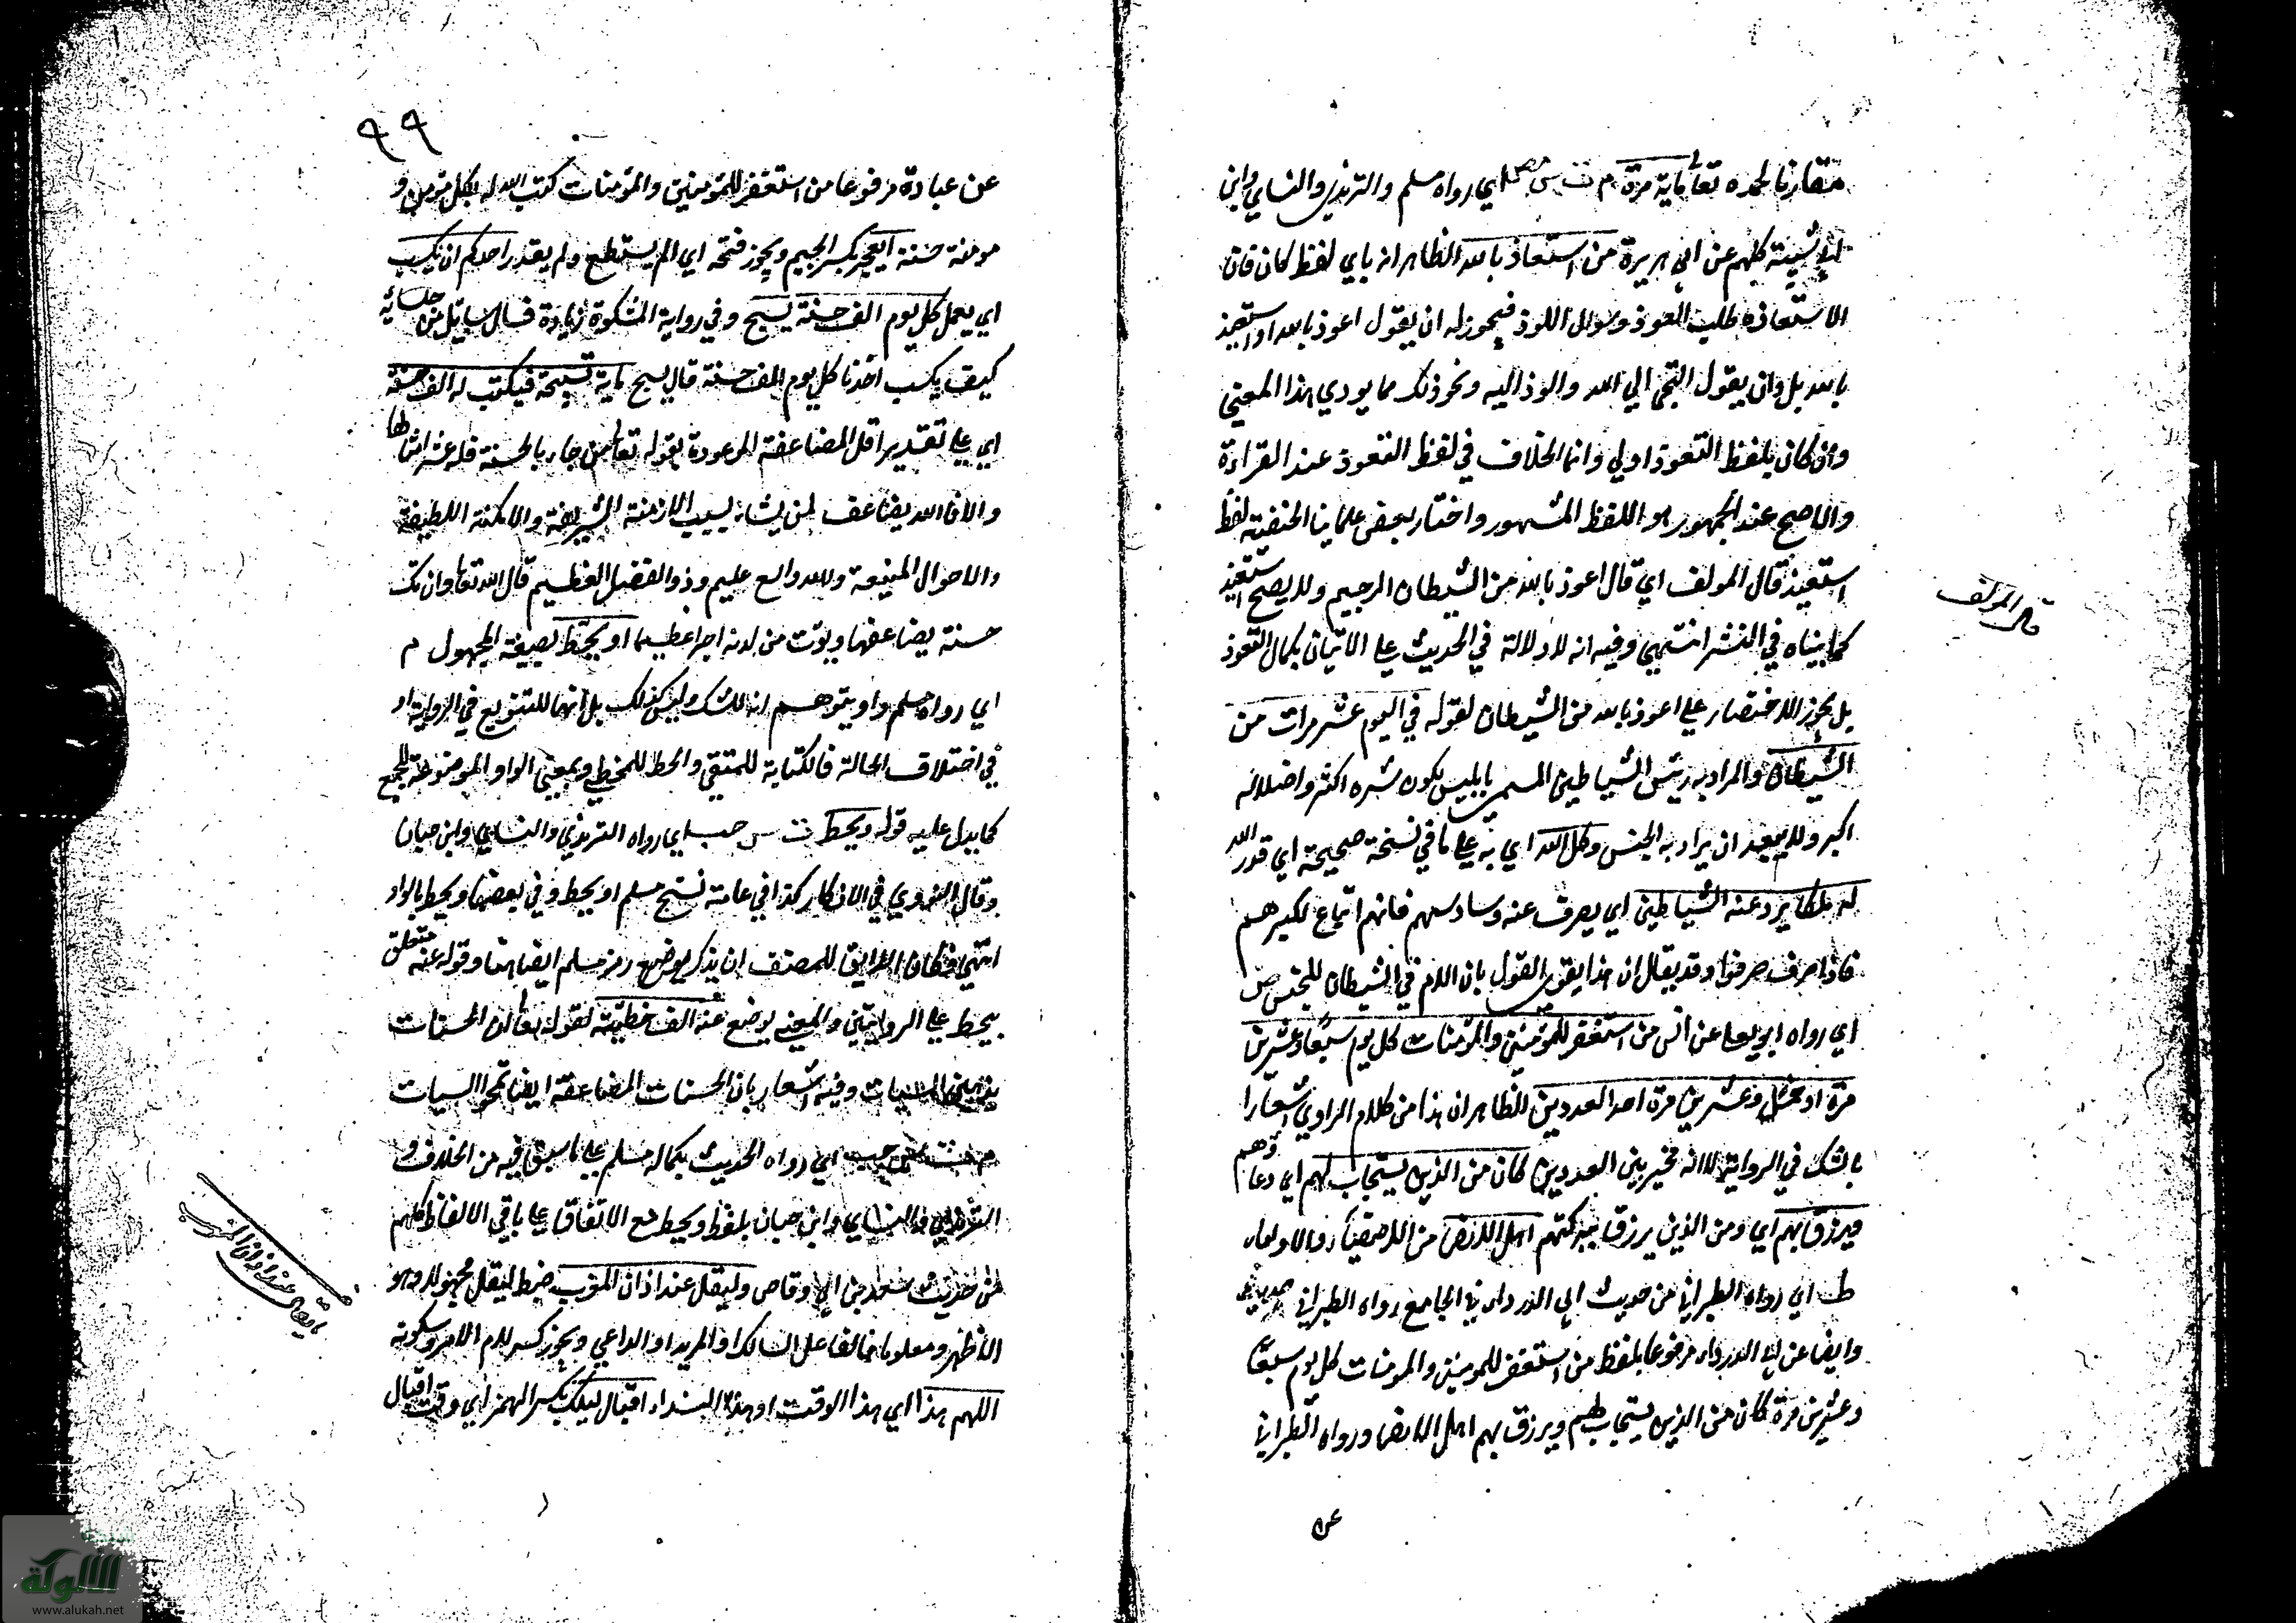 مقارنا لحمده تعالى ماية مرة م ت س مص اي رواه مسلم والترمذي والنسايي وابن
ابي شيبة كلهم عن ابي هريرة من استعاذ بالله الظاهر انه باي لفظ كان فان
الاستعاذة طلب العوذ وسوال اللوذ فيجوز له ان يقول اعوذ بالله او استعيذ
بالله بل وان يقول التجي الي الله والوذ اليه ونحو ذلك مما يودي هذا المعني
وان كان بلفظ التعوذ اولي وانما الخلاف في لفظ التعوذ عند القراءة
والاصح عند الجمهور هو اللفظ المشهور واختار بعض علماينا الحنفية لفظ
استعيذ قال المولف اي قال اعوذ بالله من الشيطان الرجيم ولا يصح استعيذ
كما بيناه في النشر انتهي وفيه انه لا دلالة في الحديث علي الاتيان بكمال التعوذ
بل يجوز الاختصار علي اعوذ بالله من الشيطان لقوله في اليوم عشر مرات من
الشيطان والمراد به رئيس الشياطين المسمى بابليس يكون شره اكثر واضلاله
اكبر ولا يبعد ان يراد به الجنس وكل الله اي به علي ما في نسخة صحيحة اي قدر الله
له ملكا يرد عنه الشياطين اي يصرف عنه وساوسهم فانهم اتباع لكبيرهم
فاذا صرف صرفوا وقد يقال ان هذا يقوي القول بان اللام في الشيطان للجنس ص
اي رواه ابو يعلى عن انس من استغفر للمؤمنين والمؤمنات كل يوم سبعا وعشرين
مرة او خمس وعشرين مرة احد العددين الظاهر ان هذا من كلام الراوي اشعارا
بالشك في الرواية لا انه مخير بين العددين كان من الذين يستجاب لهم اي دعاؤهم
ويرزق بهم اي ومن الذين يرزق ببركتهم اهل الارض من الاصفياء والاولياء
ط اي رواه الطبراني من حديث ابي الدرداء في الجامع رواه الطبراني
وايضا عن ابي الدرداء مرفوعا بلفظ من استغفر للمومنين والمومنات كل يوم سبعا
وعشرين مرة كان من الذين يستجاب لهم ويرزق بهم اهل الارض ورواه الطبراني
عن
قال المولف
٩٩
عن عبادة مرفوعا من استغفر للمؤمنين والمؤمنات كتب الله له بكل مؤمن و
مومنة حسنة ايعجز بكسر الجيم ويجوز فتحه اي الم يستطع ولم يقدر احدكم ان يكسب
اي يعمل كل يوم الف حسنة يسبح وفي رواية المشكوة زيادة فسال سايل من جلسائه
كيف يكسب احدنا كل يوم الف حسنة قال يسبح ماية تسبيحة فيكتب له الف حسنة
اي علي تقدير اقل المضاعفة الموعودة بقوله تعالى من جاء بالحسنة فله عشر امثالها
والا فالله يضاعف لمن يشاء بسبب الازمنة الشريفة والامكنة اللطيفة
والاحوال المنيعة والله واسع عليم وذو الفضل العظيم قال الله تعالى وان تك
حسنة يضاعفها ويؤت من لدنه اجرا عظيما او يحط بصيغة المجهول م
اي رواه مسلم واو يتوهم انه للشك وليس كذلك بل انها للتنويع في الرواية او
في اختلاف الحالة فالكتابة للمتقي والحط للمخطي وبمعني الواو الموضوعة للجمع
كما يدل عليه قوله ويحط ت س حب اي رواه الترمذي والنسايي وابن حبان
وقال النووي في الاذكار كذا في عامة نسخ مسلم او يحط وفي بعضها ويحط بالواو
انتهي فكان اللايق للمصنف ان يذكر بوضع رمز مسلم ايضا هنا وقوله عنه متعلق
بيحط علي الروايتين والمعني يوضع عنه الف خطيئة لقوله تعالى ان الحسنات
يذهبن السيات وفيه اشعار بان الحسنات المضاعفة ايضا تمحوا السيات
م ت س حب اي رواه الحديث بكماله مسلم علي ما سبق فيه من الخلاف و
الترمذي والنسايي وابن حبان بلفظ ويحط مع الاتفاق علي باقي الالفاظ كلهم
من حديث سعد بن ابي وقاص وليقل عند اذان المغرب ضبط ليقل مجهولا وهو
الاظهر ومعلوما فالفاعل السالك او المريد او الداعي ويجوز كسر لام الامر وسكونه
اللهم هذا اي هذا الوقت او هذا النداء اقبال ليلك بكسر الهمز اي وقت اقبال
ما يقال عند اذان المغرب
الألوكة
www.alukah.net